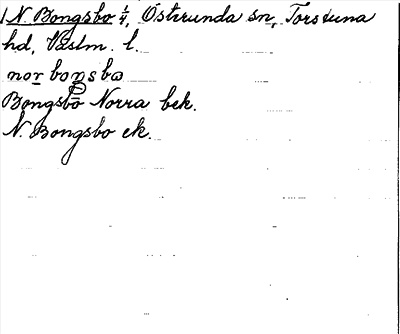 1 N. Bongsbo 1/4, Östrunda sn, Torstuna
hd, Västm. l.
nor boŋsbω
Bongsbo Norra bek.
N. Bongsbo ek.